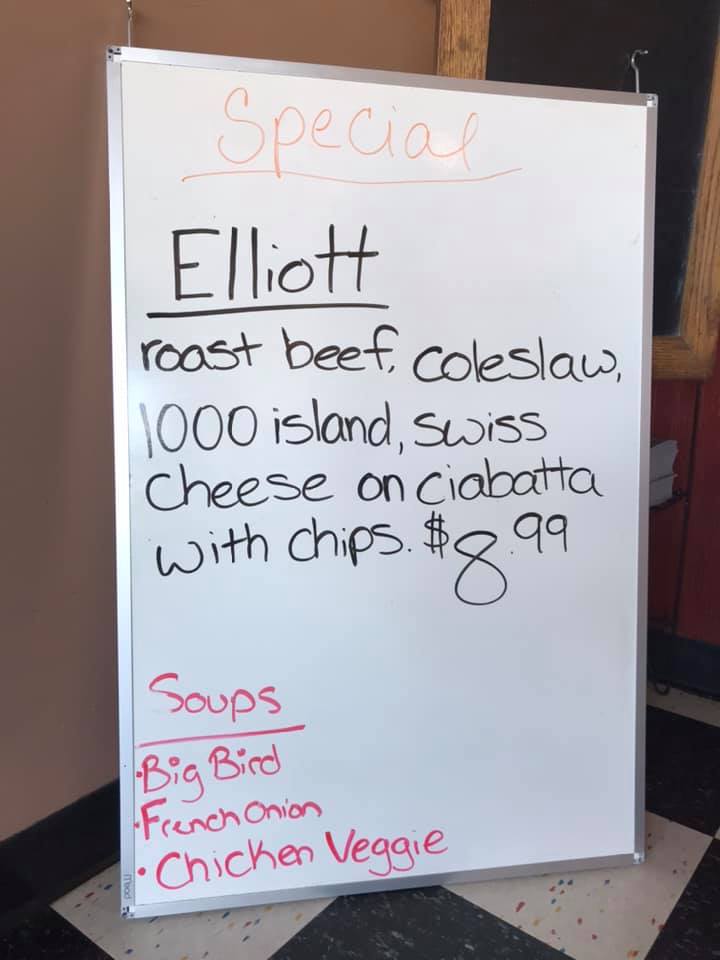 Special
Elliott
roast beef, coleslaw,
1000 island, swiss
cheese on ciabatta
with chips. $8.99
Soups
·Big Bird
·French Onion
·Chicken Veggie